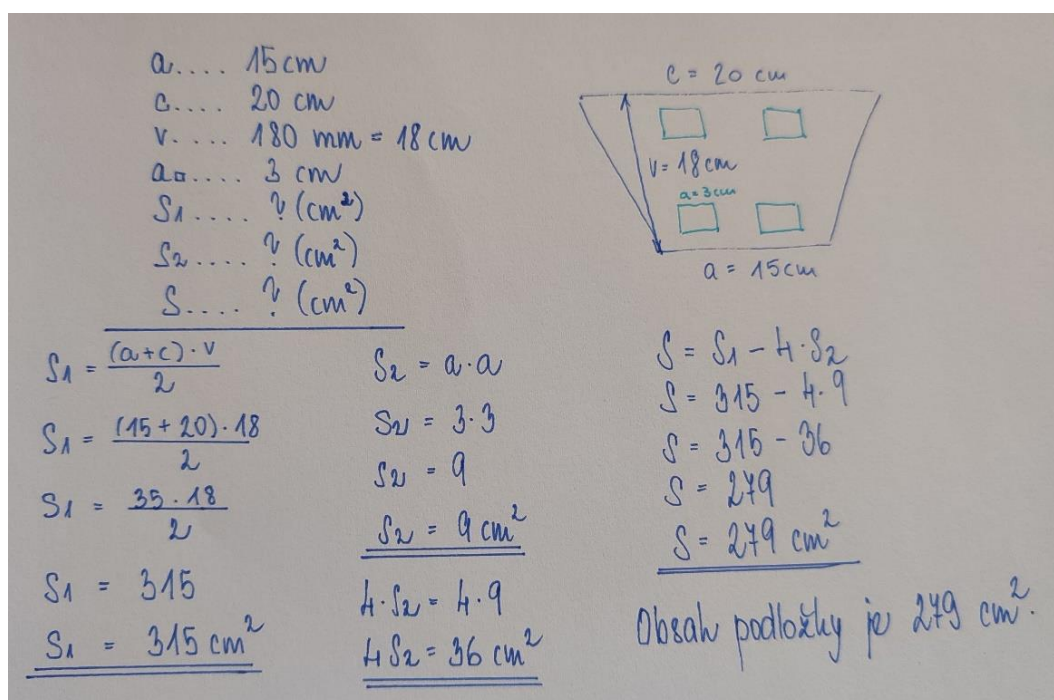 a.... 15 cm
c.... 20 cm
v.... 180 mm = 18 cm
a□.... 3 cm
S1.... ? (cm²)
S2.... ? (cm²)
S.... ? (cm²)
c = 20 cm
v = 18 cm
a = 3 cm
a = 15 cm
S1 = (a+c) · v / 2
S1 = (15 + 20) · 18 / 2
S1 = 35 · 18 / 2
S1 = 315
S1 = 315 cm²
S2 = a · a
S2 = 3 · 3
S2 = 9
S2 = 9 cm²
4 · S2 = 4 · 9
4 S2 = 36 cm²
S = S1 - 4 · S2
S = 315 - 4 · 9
S = 315 - 36
S = 279
S = 279 cm²
Obsah podložky je 279 cm².